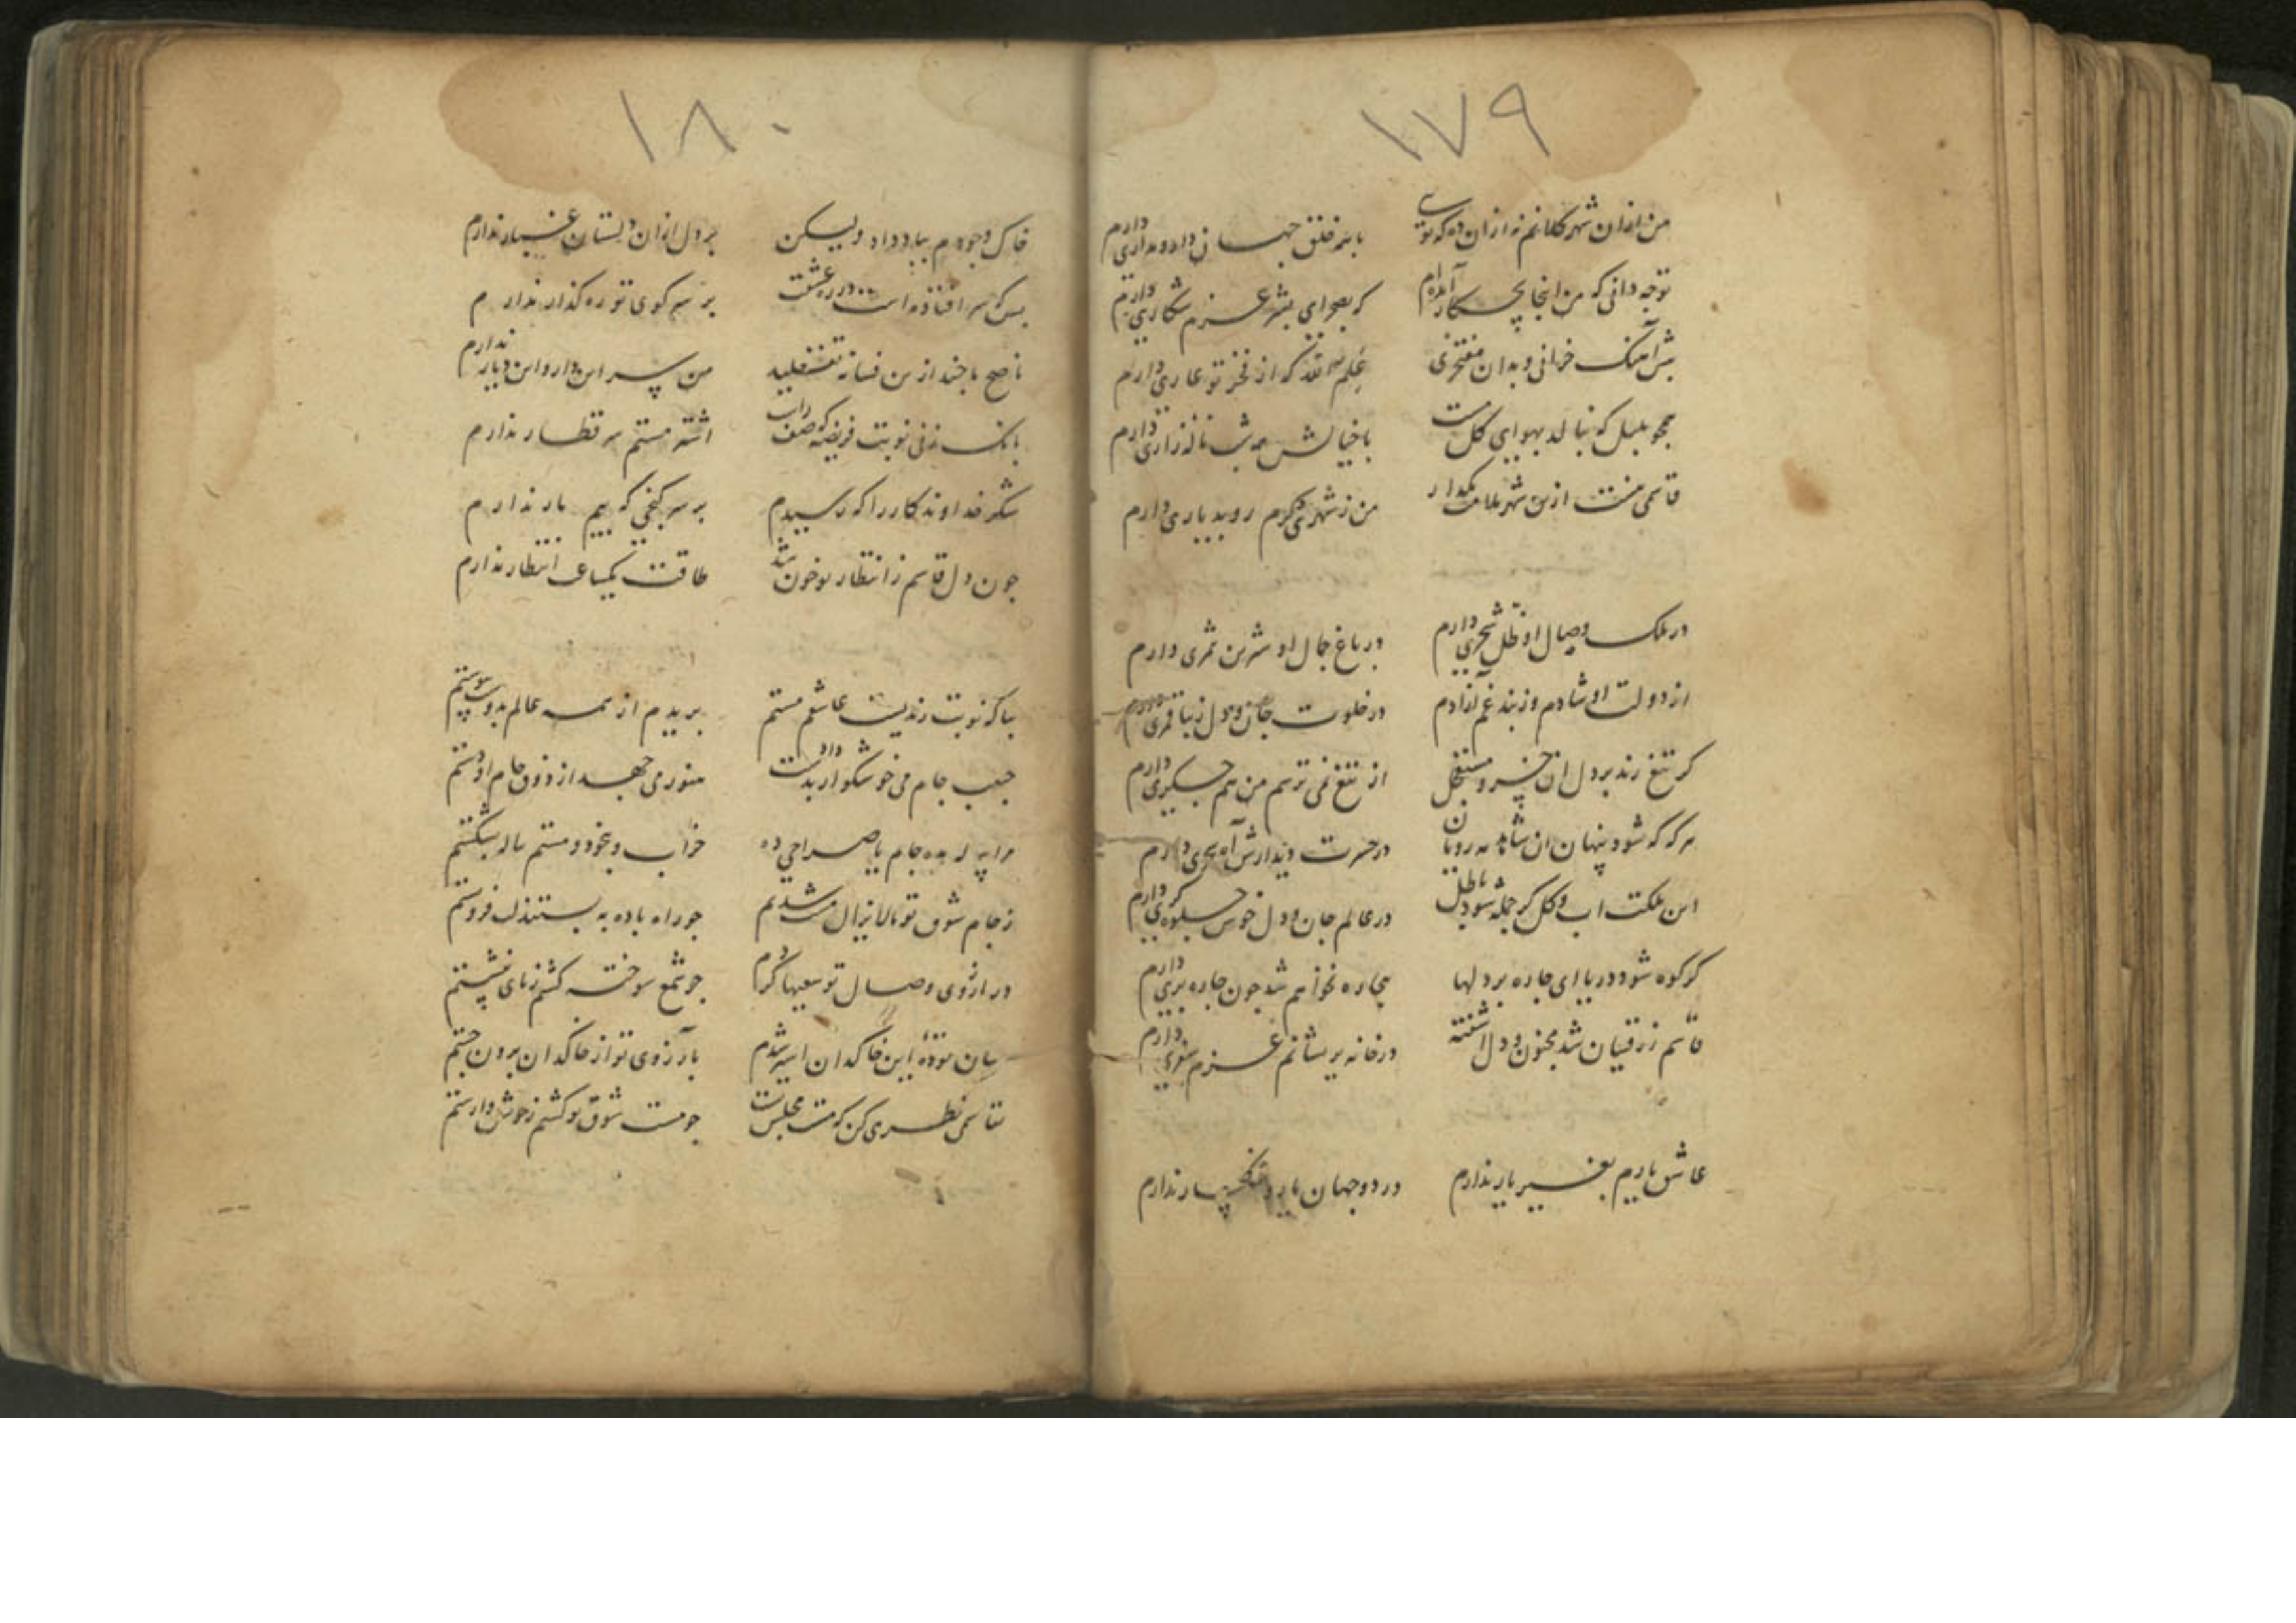 ١٧٩
من ازان شهر کلانم نه ازان ده که تویی
با همه خلق جهان داد و مداری دارم
توچه دانی که من اینجا بچه کار آمده‌ام
که بصحرای بشر عزم شکاری دارم
همچو بلبل که بنالد بهوای گل مست
با خیالش همه شب ناله زاری دارم
من ز شهری دگرم رو بدیاری دارم
در ملک وصال او ظل شجری دارم
در باغ جمال او شرین ثمری دارم
از دولت او شادم وز بند غم آزادم
در خلوت جان و دل زیبا قمری دارم
کر تیغ زند بر دل ان خسرو
از تیغ نمی ترسم من هم جگری دارم
هر که که شود پنهان ان شاهد مه رویان
در حسرت دیدارش آه سحری دارم
این ملکت اب و کل کر جمله شود باطل
در عالم جان و دل خوش جلوه کری دارم
کر کوه شود دریا ای چاره بر دلها
بیچاره نخواهم شد چون چاره بری دارم
قاسم ز رقیبان شد مجنون و دل اشفته
در خانه پریشانم عزم سفری دارم
عاشق یاریم بغیر یار ندارم
در دو جهان یار و یار ندارم
١٨٠
خاک وجودم بباد داد ولیکن
بر دل ازان دلستان غبار ندارم
بس که سر افتاده است در ره عشقت
بر سر کوی تو ره کذار ندارم
ناصح ما چند ازین فسانه
من سر این دار و این دیار ندارم
بانک زنی نوبت
اشتر مستم سر قطار ندارم
شکر خداوند کار را که رسیدم
بر سر کنجی که بیم مار ندارم
چون دل قاسم ز انتظار تو خون شد
طاقت یکساعت انتظار ندارم
بیا که نوبت رندیست عاشقم مستم
بریدم از همه عالم بدوست پیوستم
حبیب جام می خوشگوار داد بدست
هنوز می جهد از ذوق جام او دستم
مرا پیاله مده جام یا صراحی ده
خراب و بیخود و مستم پیاله بشکستم
ز جام شوق تو تا لایزال مست شدیم
در ارزوی وصال تو سعیها کردم
چو شمع سوخته کشتم ز پای ننشستم
میان تودهٔ این خاکدان اسیر شدم
بآرزوی تو از خاکدان برون جستم
بقاسمی نظری کن که مست مجلس تست
چو مست شوق تو کشتم ز خویش وارستم